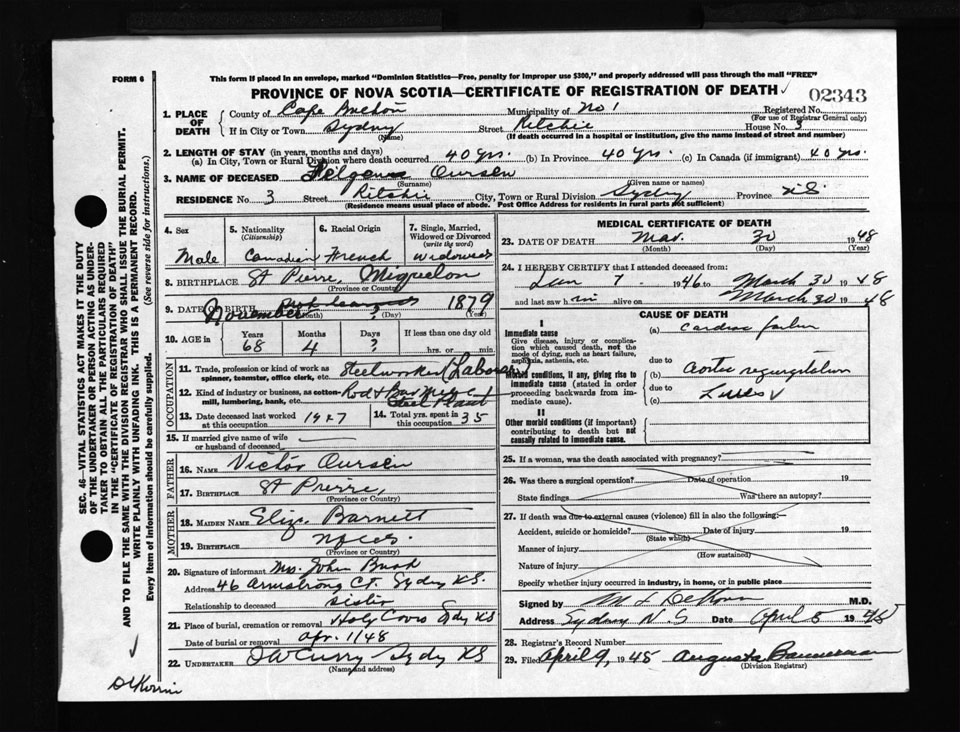 FORM 6
This form if placed in an envelope, marked "Dominion Statistics—Free, penalty for improper use $300," and properly addressed will pass through the mail "FREE"
PROVINCE OF NOVA SCOTIA—CERTIFICATE OF REGISTRATION OF DEATH ✓ 02343
1. PLACE OF DEATH
County of Cape Breton Municipality of No 1 Registered No.
(For use of Registrar General only)
If in City or Town Sydney Street Ritchie House No. 3
(Name) (If death occurred in a hospital or institution, give the name instead of street and number)
2. LENGTH OF STAY (in years, months and days)
(a) In City, Town or Rural Division where death occurred 40 yrs. (b) In Province 40 yrs. (c) In Canada (if immigrant) 40 yrs.
3. NAME OF DECEASED Oursen
(Surname) (Given name or names)
RESIDENCE No. 3 Street Ritchie City, Town or Rural Division Sydney Province N.S.
(Residence means usual place of abode. Post Office Address for residents in rural parts not sufficient)
4. Sex
Male
5. Nationality
(Citizenship)
Canadian
6. Racial Origin
French
7. Single, Married, Widowed or Divorced
(write the word)
Widowed
8. BIRTHPLACE St Pierre, Miquelon
(Province or Country)
9. DATE OF BIRTH November ? 1879
(Day) (Year)
10. AGE in
Years 68
Months 4
Days ?
If less than one day old
hrs. or min.
OCCUPATION
11. Trade, profession or kind of work as spinner, teamster, office clerk, etc. Steelworker (Laborer)
12. Kind of industry or business, as cotton-mill, lumbering, bank, etc. Rod & Bar Mill Steel Plant
13. Date deceased last worked at this occupation 1927
14. Total yrs. spent in this occupation 35
15. If married give name of wife or husband of deceased
FATHER
16. NAME Victor Oursen
17. BIRTHPLACE St Pierre,
(Province or Country)
MOTHER
18. MAIDEN NAME Eliza Barnett
19. BIRTHPLACE
(Province or Country)
20. Signature of informant Mrs. John Bush
Address 46 Armstrong Ct. Sydney N.S.
Relationship to deceased sister
21. Place of burial, cremation or removal Holy Cross Sydney N.S
Date of burial or removal Apr. 1/48
22. UNDERTAKER D W Curry Sydney N.S
(Name and address)
MEDICAL CERTIFICATE OF DEATH
23. DATE OF DEATH Mar. 30 1948
(Month) (Day) (Year)
24. I HEREBY CERTIFY that I attended deceased from:
Jan 7 1946 to March 30 1948
and last saw him alive on March 30 1948
CAUSE OF DEATH
I
Immediate cause
Give disease, injury or complication which caused death, not the mode of dying, such as heart failure, asphyxia, asthenia, etc.
(a) Cardiac failure
due to
Morbid conditions, if any, giving rise to immediate cause (stated in order proceeding backwards from immediate cause).
(b) Aortic regurgitation
due to
(c) Lues ✓
II
Other morbid conditions (if important) contributing to death but not causally related to immediate cause.
25. If a woman, was the death associated with pregnancy?
26. Was there a surgical operation? Date of operation 19
State findings Was there an autopsy?
27. If death was due to external causes (violence) fill in also the following:—
Accident, suicide or homicide? Date of injury 19
(State which)
Manner of injury
(How sustained)
Nature of injury
Specify whether injury occurred in industry, in home, or in public place
Signed by M.D.
Address Sydney N.S Date April 5 1948
28. Registrar's Record Number
29. Filed April 9, 1948 Augusta Bannerman
(Division Registrar)
SEC. 46—VITAL STATISTICS ACT MAKES IT THE DUTY
OF THE UNDERTAKER OR PERSON ACTING AS UNDER-
TAKER TO OBTAIN ALL THE PARTICULARS REQUIRED
IN THE "CERTIFICATE OF REGISTRATION OF DEATH"
AND TO FILE THE SAME WITH THE DIVISION REGISTRAR WHO SHALL ISSUE THE BURIAL PERMIT.
WRITE PLAINLY WITH UNFADING INK. THIS IS A PERMANENT RECORD.
Every item of information should be carefully supplied. (See reverse side for instructions.)
✓